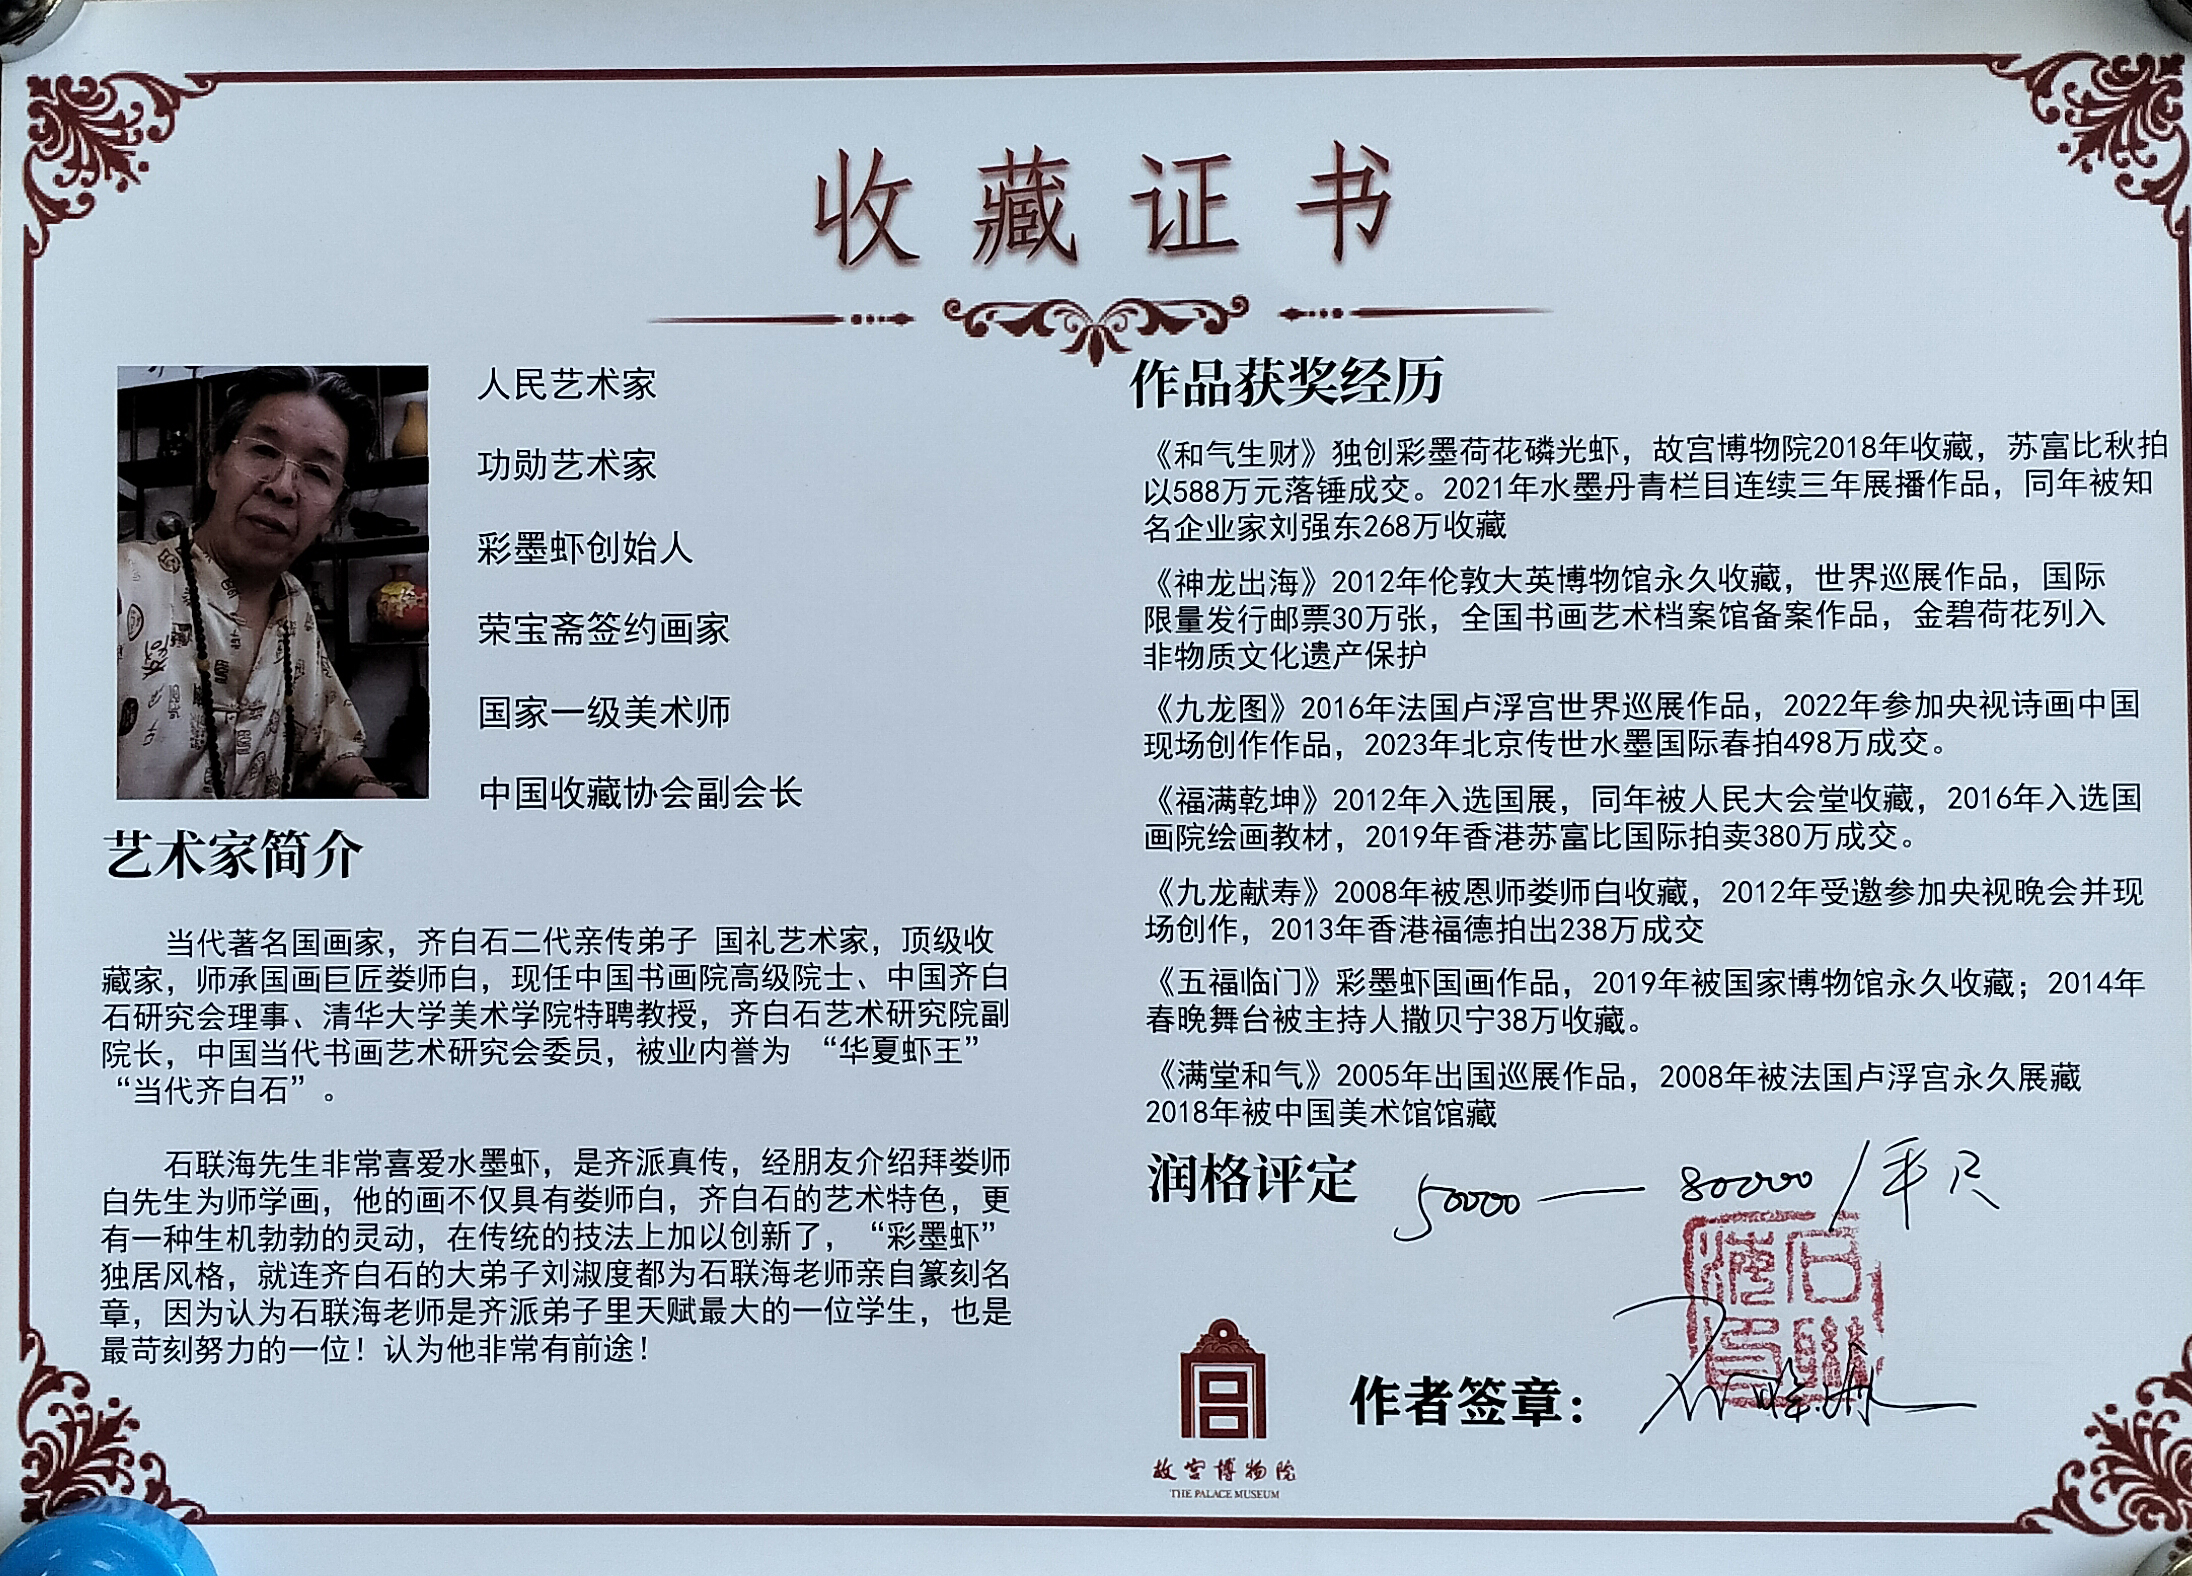 收藏证书
人民艺术家
功勋艺术家
彩墨虾创始人
荣宝斋签约画家
国家一级美术师
中国收藏协会副会长
艺术家简介
当代著名国画家，齐白石二代亲传弟子 国礼艺术家，顶级收
藏家，师承国画巨匠娄师白，现任中国书画院高级院士、中国齐白
石研究会理事、清华大学美术学院特聘教授，齐白石艺术研究院副
院长，中国当代书画艺术研究会委员，被业内誉为 “华夏虾王”
“当代齐白石”。
石联海先生非常喜爱水墨虾，是齐派真传，经朋友介绍拜娄师
白先生为师学画，他的画不仅具有娄师白，齐白石的艺术特色，更
有一种生机勃勃的灵动，在传统的技法上加以创新了，“彩墨虾”
独居风格，就连齐白石的大弟子刘淑度都为石联海老师亲自篆刻名
章，因为认为石联海老师是齐派弟子里天赋最大的一位学生，也是
最苛刻努力的一位！认为他非常有前途！
作品获奖经历
《和气生财》独创彩墨荷花磷光虾，故宫博物院2018年收藏，苏富比秋拍
以588万元落锤成交。2021年水墨丹青栏目连续三年展播作品，同年被知
名企业家刘强东268万收藏
《神龙出海》2012年伦敦大英博物馆永久收藏，世界巡展作品，国际
限量发行邮票30万张，全国书画艺术档案馆备案作品，金碧荷花列入
非物质文化遗产保护
《九龙图》2016年法国卢浮宫世界巡展作品，2022年参加央视诗画中国
现场创作作品，2023年北京传世水墨国际春拍498万成交。
《福满乾坤》2012年入选国展，同年被人民大会堂收藏，2016年入选国
画院绘画教材，2019年香港苏富比国际拍卖380万成交。
《九龙献寿》2008年被恩师娄师白收藏，2012年受邀参加央视晚会并现
场创作，2013年香港福德拍出238万成交
《五福临门》彩墨虾国画作品，2019年被国家博物馆永久收藏；2014年
春晚舞台被主持人撒贝宁38万收藏。
《满堂和气》2005年出国巡展作品，2008年被法国卢浮宫永久展藏
2018年被中国美术馆馆藏
润格评定 50000—80000/平尺
作者签章： 石联海
故宫博物院
THE PALACE MUSEUM